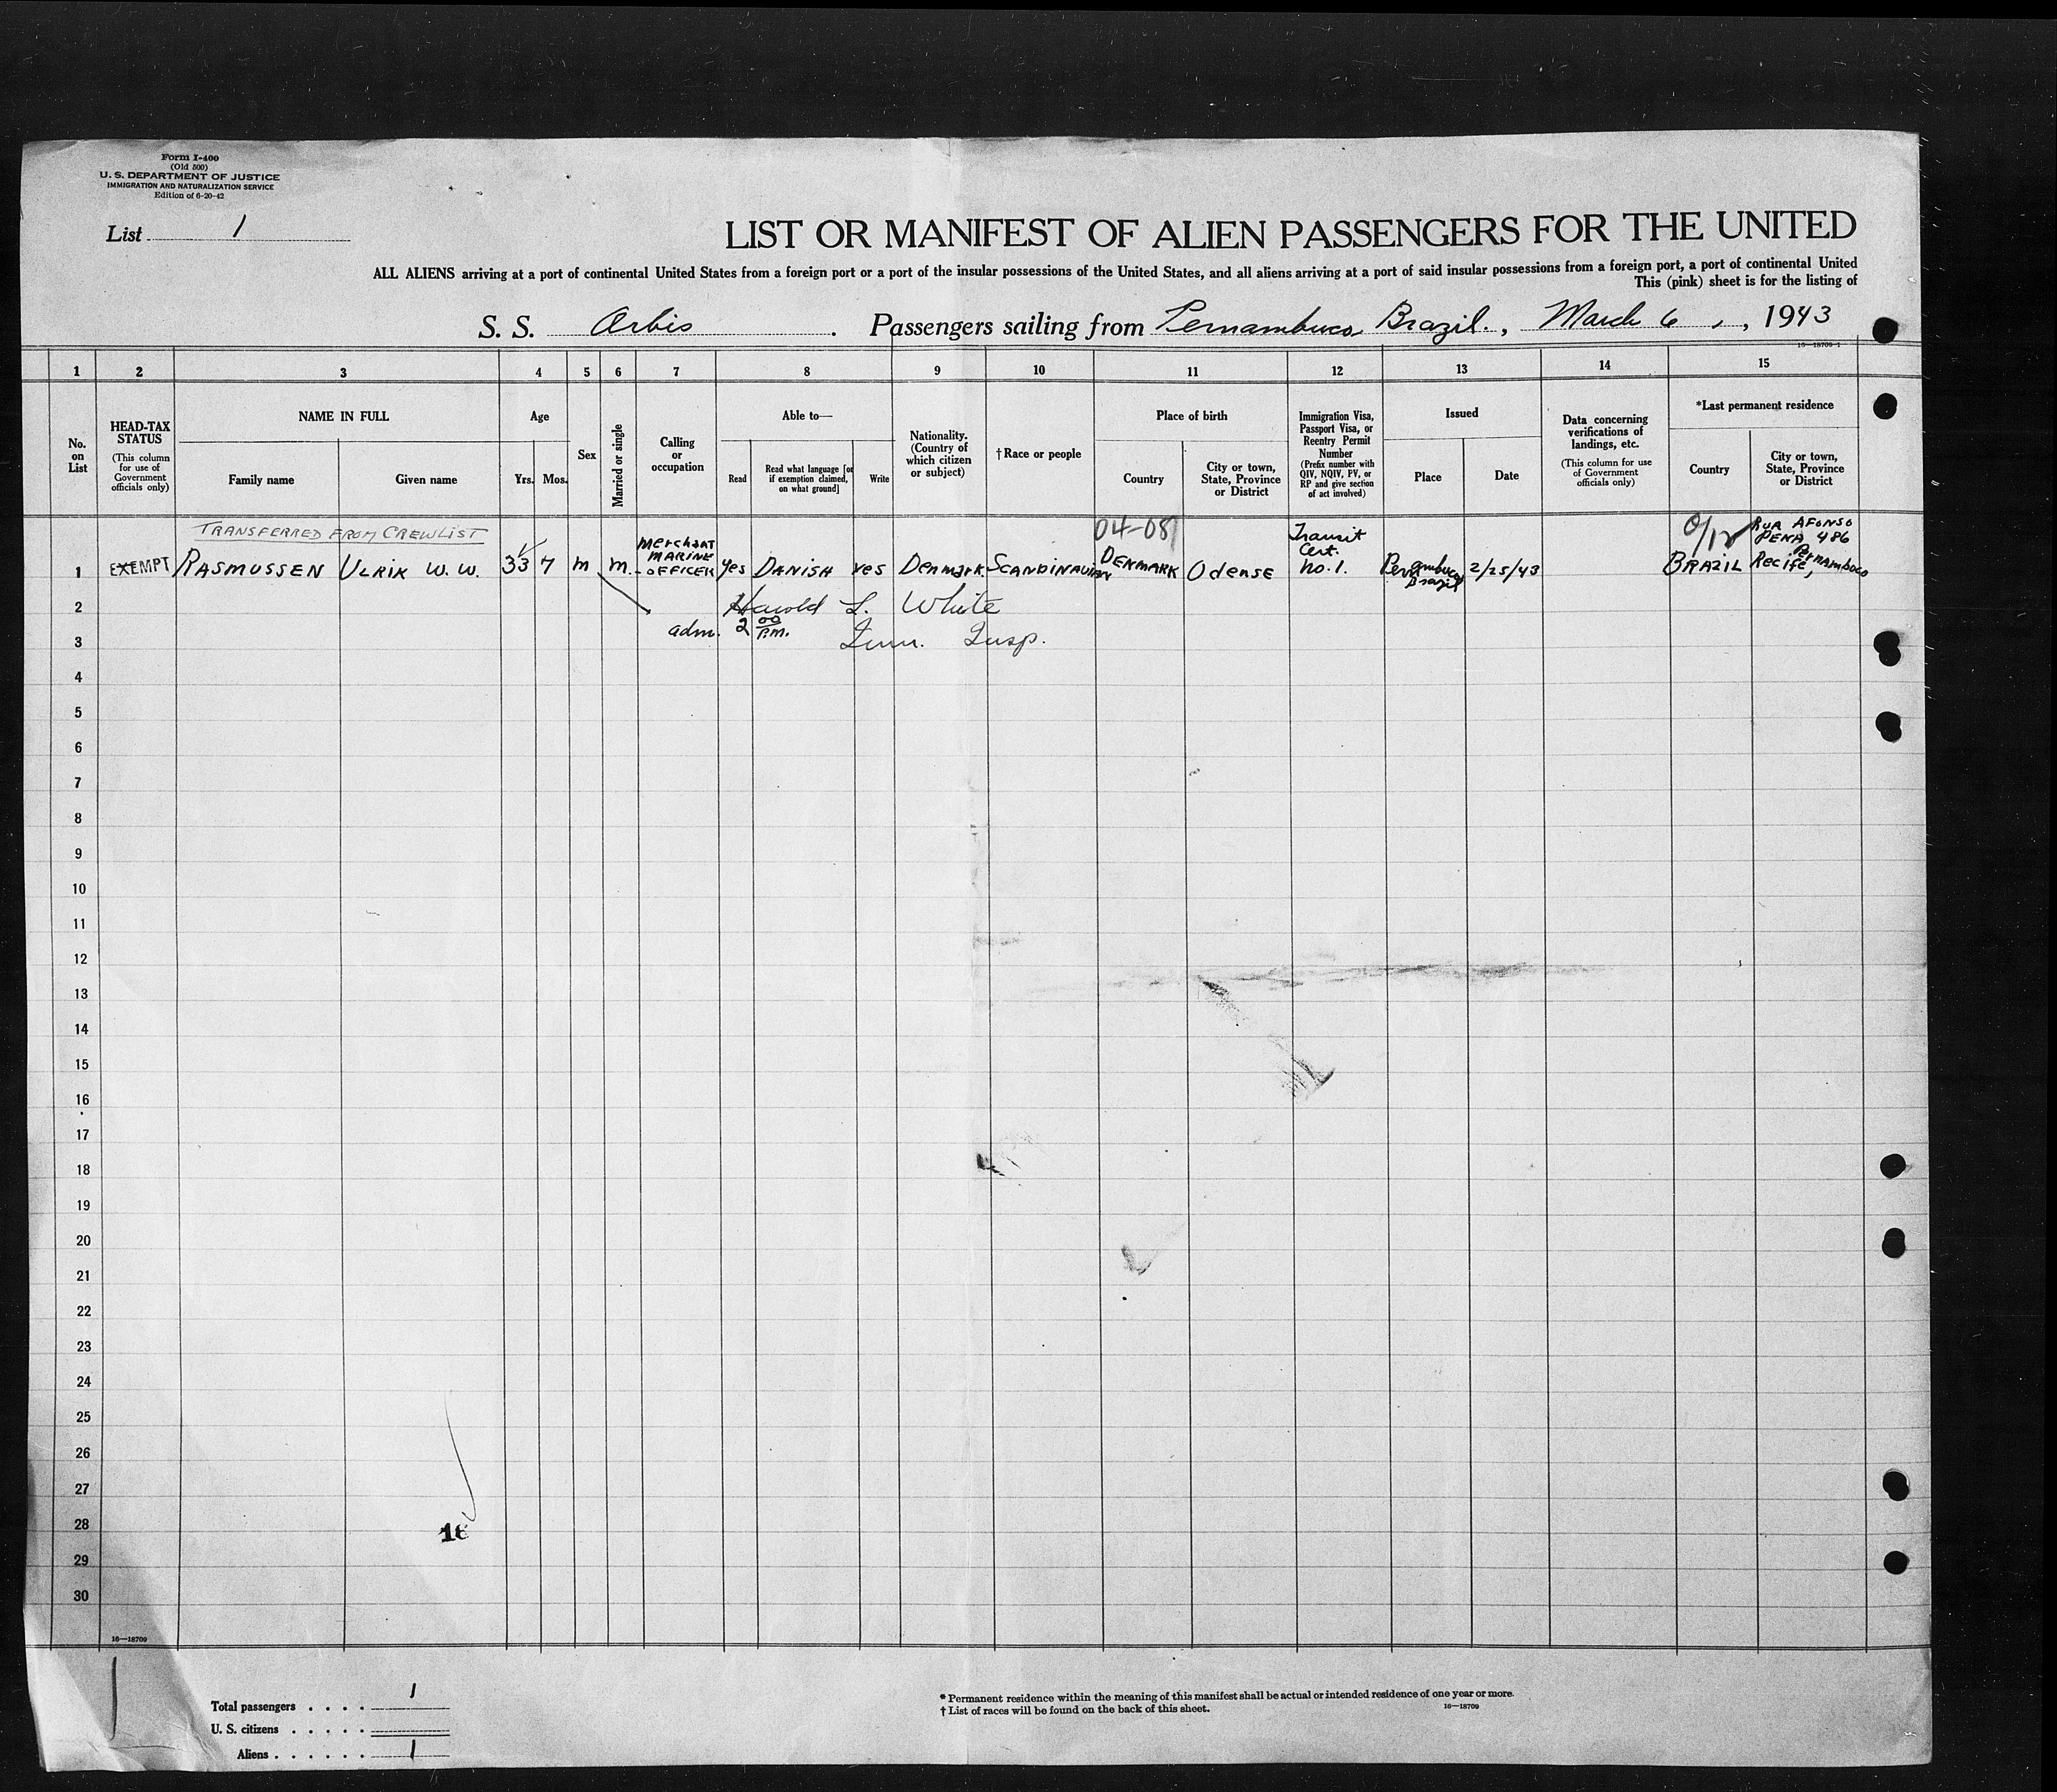 Form I-400
(Old 500)
U. S. DEPARTMENT OF JUSTICE
IMMIGRATION AND NATURALIZATION SERVICE
Edition of 6-20-42
List 1
LIST OR MANIFEST OF ALIEN PASSENGERS FOR THE UNITED
ALL ALIENS arriving at a port of continental United States from a foreign port or a port of the insular possessions of the United States, and all aliens arriving at a port of said insular possessions from a foreign port, a port of continental United
This (pink) sheet is for the listing of
S. S. Orbis. Passengers sailing from Pernambuco, Brazil., March 6, 1943
16—18709-1
1 2 3 4 5 6 7 8 9 10 11 12 13 14 15
No. on List
HEAD-TAX STATUS
(This column for use of Government officials only)
NAME IN FULL
Family name
Given name
Age
Yrs. Mos.
Sex
Married or single
Calling or occupation
Able to—
Read
Read what language [or if exemption claimed, on what ground]
Write
Nationality. (Country of which citizen or subject)
† Race or people
Place of birth
Country
City or town, State, Province or District
Immigration Visa, Passport Visa, or Reentry Permit Number
(Prefix number with QIV, NQIV, PV, or RP and give section of act involved)
Issued
Place
Date
Data concerning verifications of landings, etc.
(This column for use of Government officials only)
*Last permanent residence
Country
City or town, State, Province or District
TRANSFERRED FROM CREWLIST
04-08
1 EXEMPT RASMUSSEN ULRIK W. W. 33 7 m m. Merchant MARINE OFFICER yes DANISH yes Denmark SCANDINAVIAN DENMARK Odense Transit Cert. No. 1. Pernambuco Brazil 2/25/43 BRAZIL RUA AFONSO PENA 486 Recife, Pernambuco
2 Harold L. White
3 adm. 2 00 P.M. Imm. Insp.
4
5
6
7
8
9
10
11
12
13
14
15
16
17
18
19
20
21
22
23
24
25
26
27
28
29
30
16—18709
Total passengers . . . . 1
U. S. citizens . . . . .
Aliens . . . . . . 1
* Permanent residence within the meaning of this manifest shall be actual or intended residence of one year or more.
† List of races will be found on the back of this sheet.
16—18709